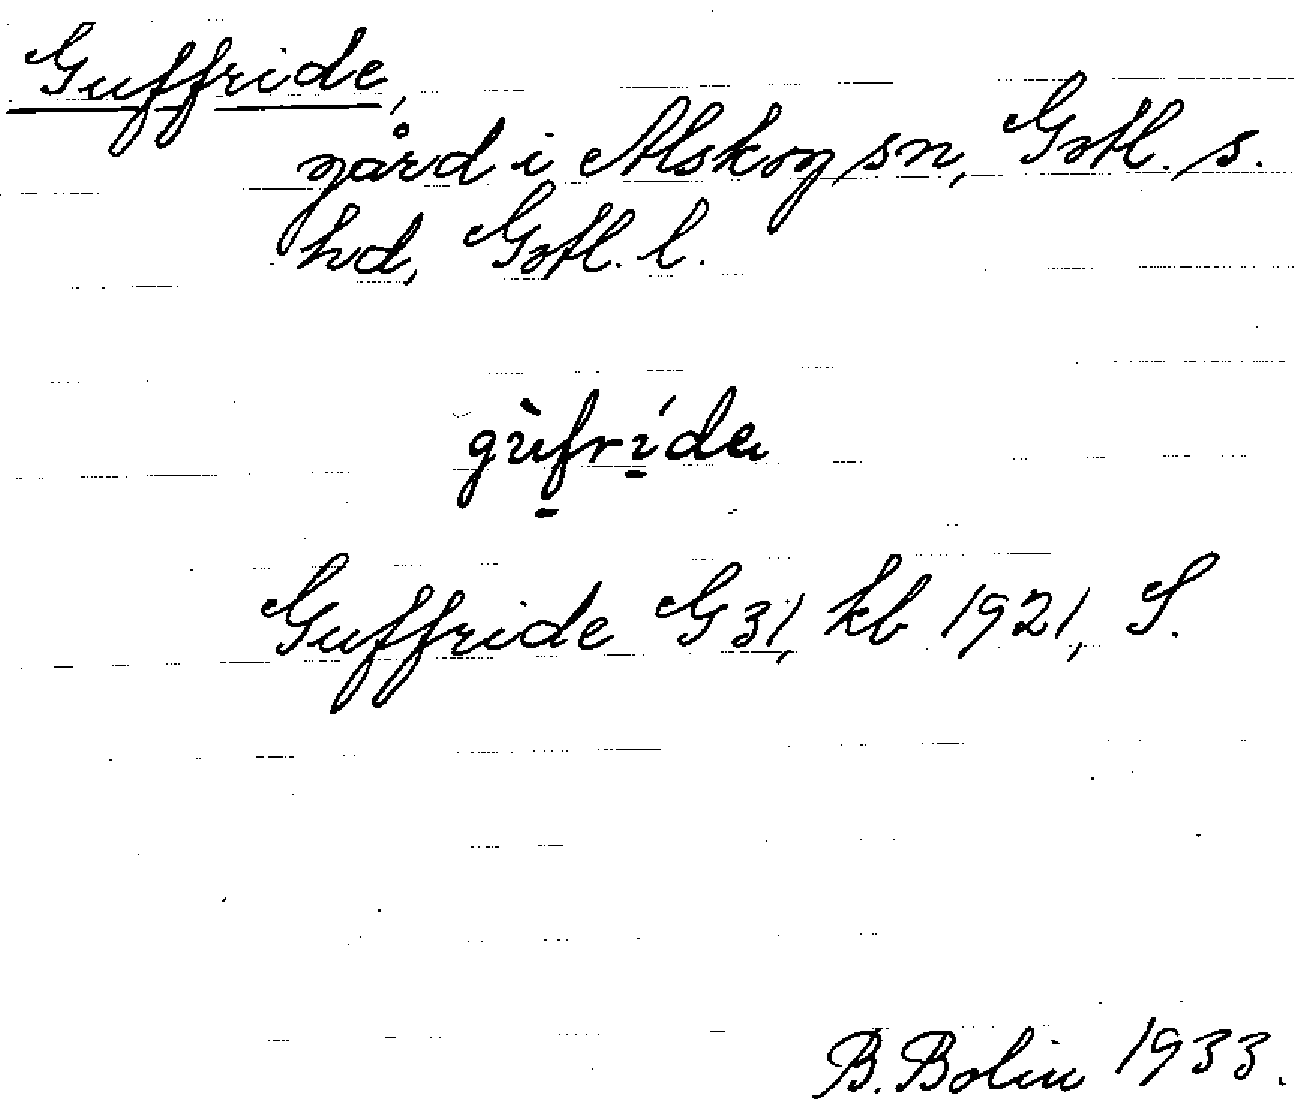 Guffride,
gård i Alskog sn, Gotl. s.
hd, Gotl. l.
gùfríde
Guffride G 31, kb 1921, S.
B. Bolin 1933.